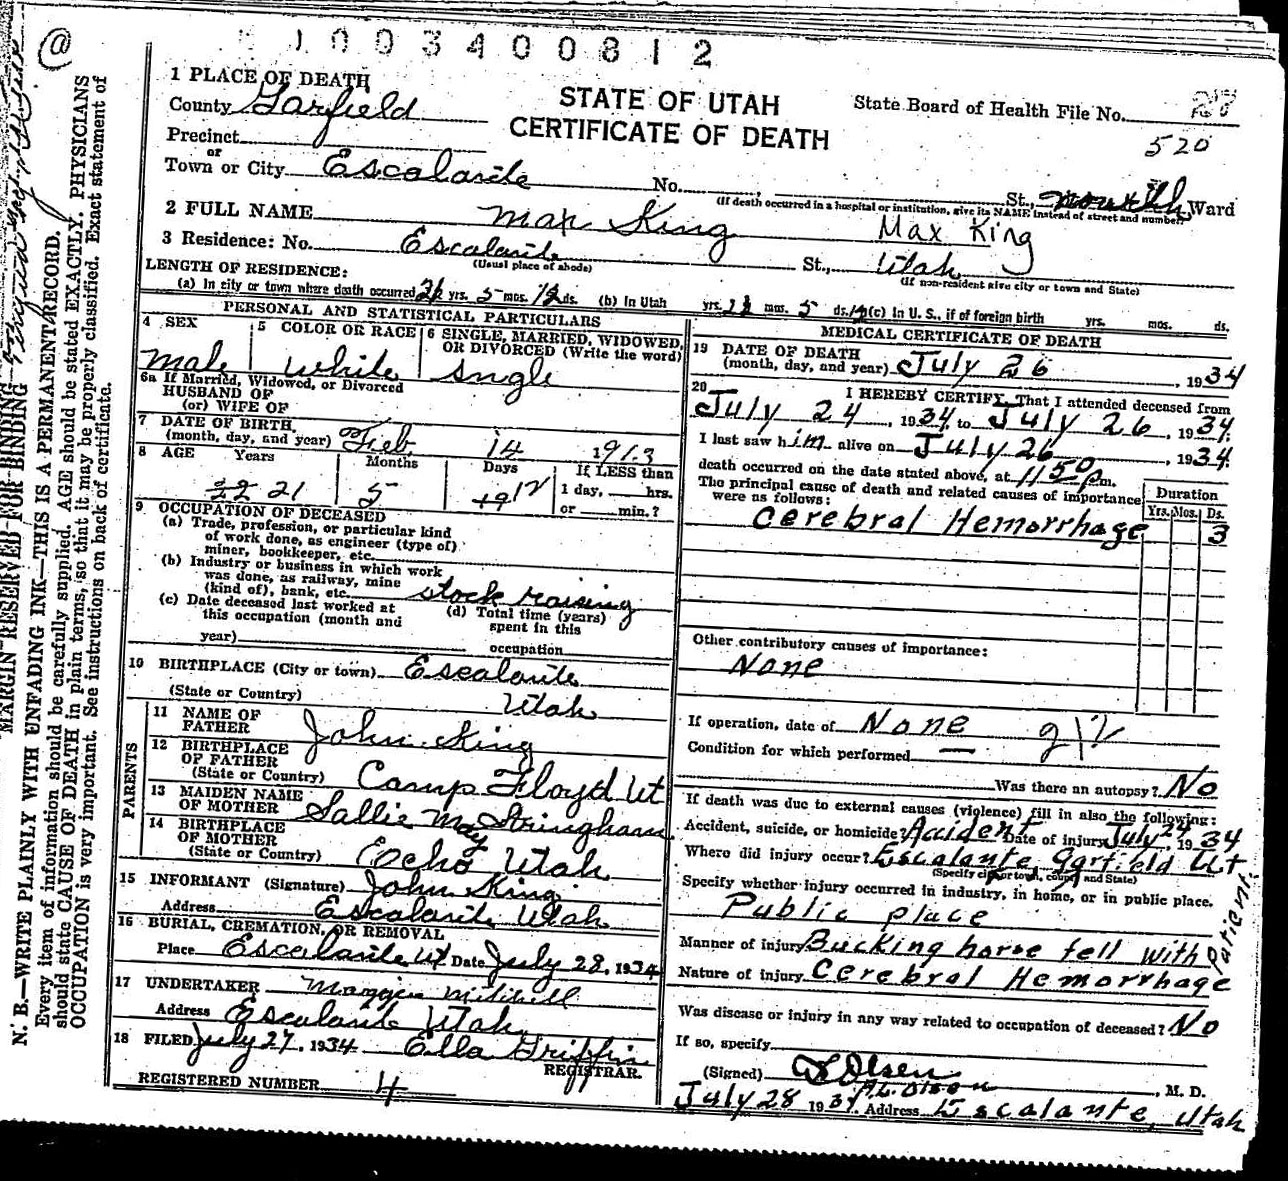 1003400812
1 PLACE OF DEATH
County Garfield
STATE OF UTAH
CERTIFICATE OF DEATH
State Board of Health File No.
520
Precinct
or
Town or City Escalante No. St., Ward
(If death occurred in a hospital or institution, give its NAME instead of street and number)
2 FULL NAME Max King Max King
3 Residence: No. Escalante St., Utah
(Usual place of abode) (If non-resident give city or town and State)
LENGTH OF RESIDENCE:
(a) In city or town where death occurred yrs. 5 mos. 12 ds. (b) In Utah yrs. mos. 5 ds. (c) In U. S., if of foreign birth yrs. mos. ds.
PERSONAL AND STATISTICAL PARTICULARS
4 SEX 5 COLOR OR RACE 6 SINGLE, MARRIED, WIDOWED, OR DIVORCED (Write the word)
Male White Single
6a If Married, Widowed, or Divorced
HUSBAND OF
(or) WIFE OF
7 DATE OF BIRTH
(month, day, and year) Feb 14 1913
8 AGE Years Months Days If LESS than
22 21 5 12 1 day, hrs.
or min.?
9 OCCUPATION OF DECEASED
(a) Trade, profession, or particular kind
of work done, as engineer (type of)
miner, bookkeeper, etc.
(b) Industry or business in which work
was done, as railway, mine
(kind of), bank, etc. stock raising
(c) Date deceased last worked at
this occupation (month and
year)
(d) Total time (years)
spent in this
occupation
10 BIRTHPLACE (City or town) Escalante
(State or Country) Utah
PARENTS
11 NAME OF
FATHER John King
12 BIRTHPLACE
OF FATHER
(State or Country) Camp Floyd Ut
13 MAIDEN NAME
OF MOTHER Sallie May Stringham
14 BIRTHPLACE
OF MOTHER
(State or Country) Echo Utah
15 INFORMANT (Signature) John King
Address Escalante Utah
16 BURIAL, CREMATION, OR REMOVAL
Place Escalante Ut Date July 28, 1934
17 UNDERTAKER Maggie Mitchell
Address Escalante Utah
18 FILED July 27, 1934 Ella Griffin
REGISTRAR.
REGISTERED NUMBER 4
MEDICAL CERTIFICATE OF DEATH
19 DATE OF DEATH
(month, day, and year) July 26, 1934
20 I HEREBY CERTIFY, That I attended deceased from
July 24, 1934, to July 26, 1934.
I last saw him alive on July 26, 1934.
death occurred on the date stated above, at 11 50 p m.
The principal cause of death and related causes of importance
were as follows:
Duration
Yrs. Mos. Ds.
Cerebral Hemorrhage 3
Other contributory causes of importance:
None
If operation, date of None
Condition for which performed —
Was there an autopsy? No
If death was due to external causes (violence) fill in also the following:
Accident, suicide, or homicide? Accident Date of injury July 24, 1934
Where did injury occur? Escalante Garfield Ut
(Specify city or town, county and State)
Specify whether injury occurred in industry, in home, or in public place.
Public place
Manner of injury Bucking horse fell with patient
Nature of injury Cerebral Hemorrhage
Was disease or injury in any way related to occupation of deceased? No
If so, specify
(Signed) Olsen, M. D.
July 28 1934. Address Escalante, Utah
MARGIN RESERVED FOR BINDING
N. B.—WRITE PLAINLY WITH UNFADING INK—THIS IS A PERMANENT RECORD.
Every item of information should be carefully supplied. AGE should be stated EXACTLY. PHYSICIANS
should state CAUSE OF DEATH in plain terms, so that it may be properly classified. Exact statement of
OCCUPATION is very important. See instructions on back of certificate.